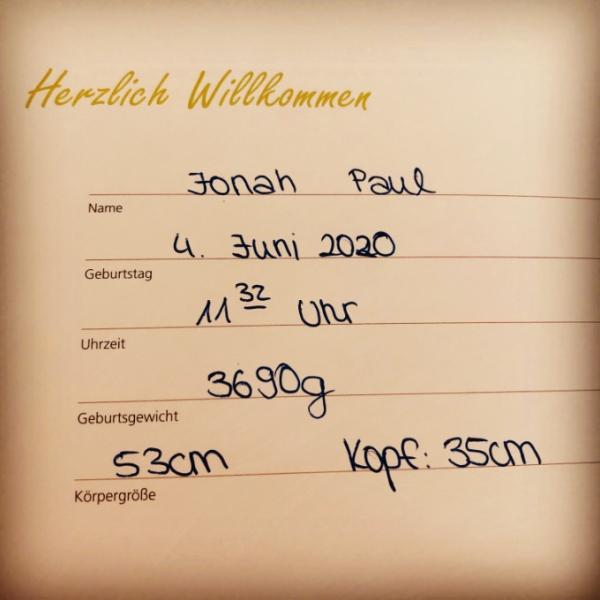 Herzlich Willkommen
Jonah Paul
Name
4. Juni 2020
Geburtstag
11 32 Uhr
Uhrzeit
3690g
Geburtsgewicht
53cm Kopf: 35cm
Körpergröße